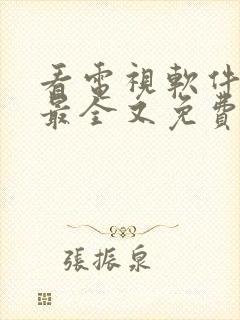 看電視軟件
最全又免費
張振泉